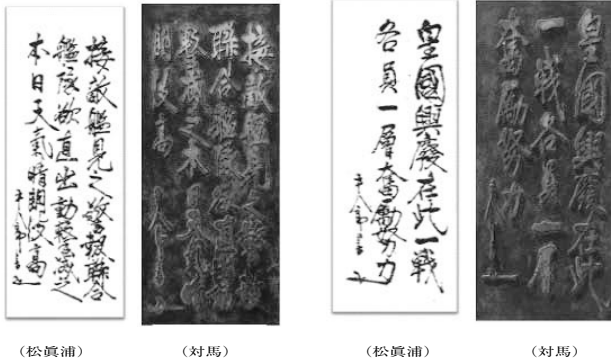 接敵艦見之警報聯合
艦隊欲直出動撃滅之
本日天氣晴朗波高
接敵艦見之警報
聯合艦隊欲直出動
撃滅之本日天氣晴
朗波高
皇國興廢在此一戰
各員一層奮勵努力
皇國興廢在此
一戰各員一層
奮勵努力
（松眞浦）
（対馬）
（松眞浦）
（対馬）